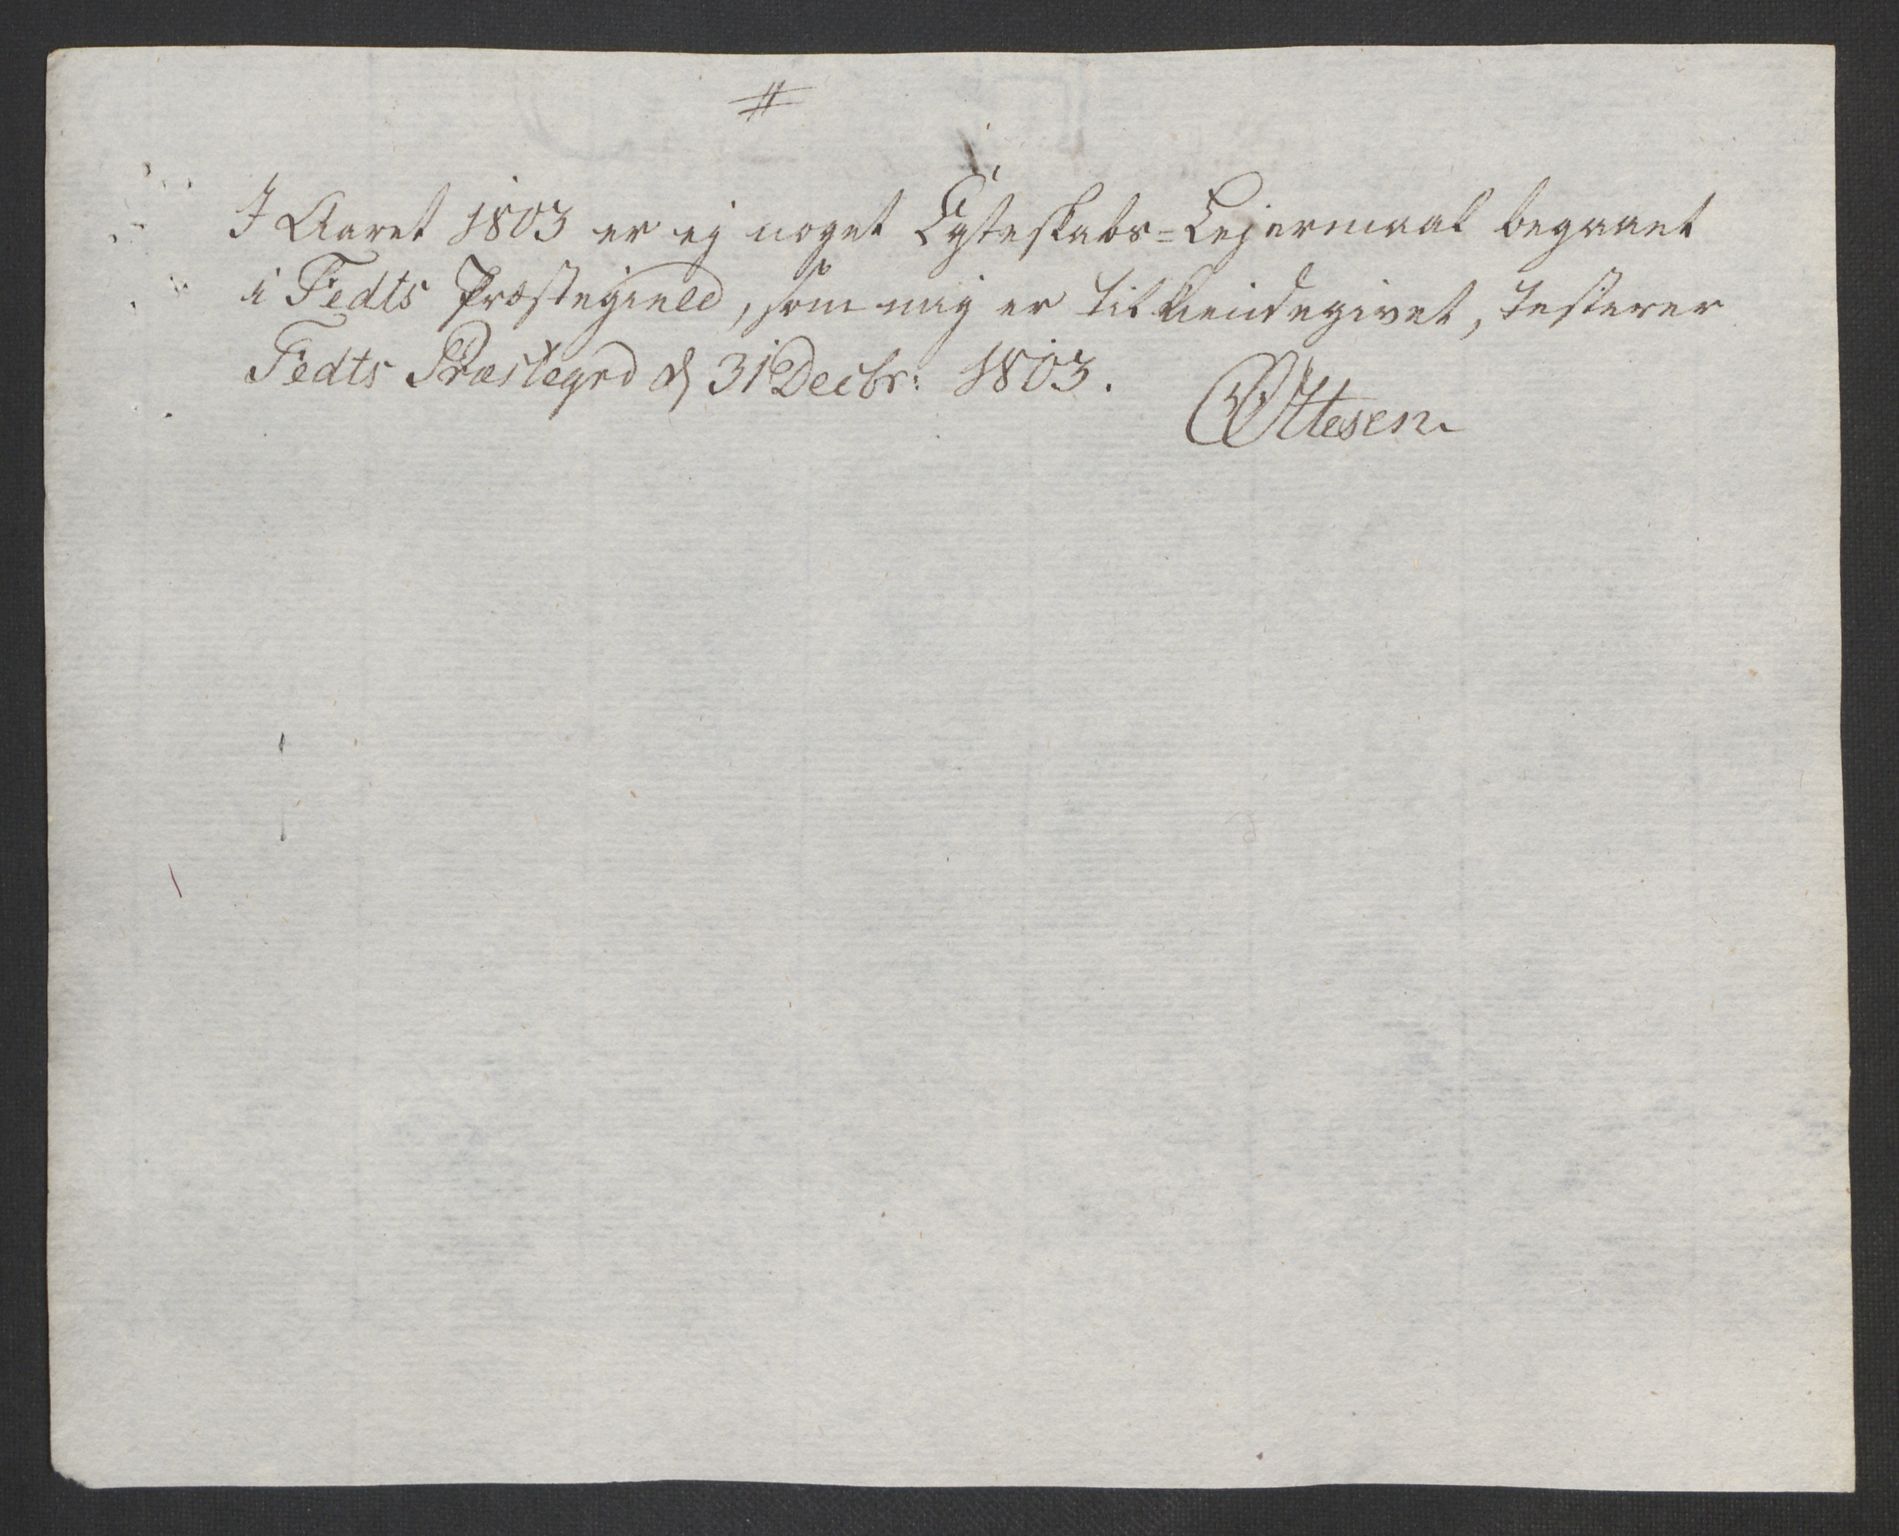 #
I Aaret 1803 er ej noget Egteskabs=Lejermaal begaaet
i Fedts Præstegield, som mig er tilkiendegivet, testerer
Fedts Præstegrd d 31 Decbr: 1803.
Ottesen.